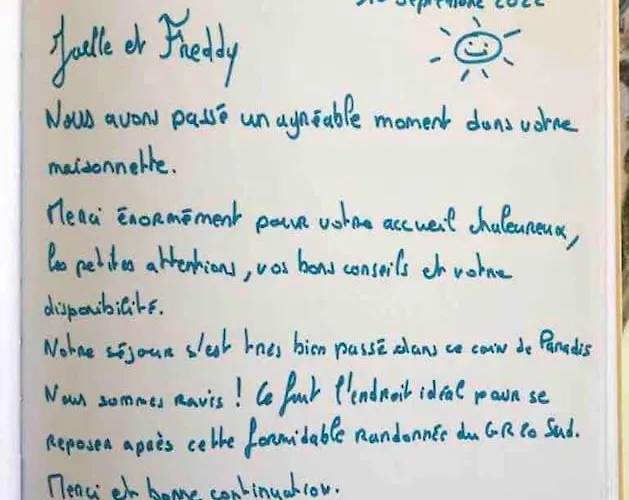 Septembre 2022
Joelle et Freddy
Nous avons passé un agréable moment dans votre
maisonnette.
Merci énormément pour votre accueil chaleureux,
les petites attentions, vos bons conseils et votre
disponibilité.
Notre séjour s'est très bien passé dans ce coin de Paradis
Nous sommes ravis ! Ce fut l'endroit idéal pour se
reposer après cette formidable randonnée du GR20 Sud.
Merci et bonne continuation.